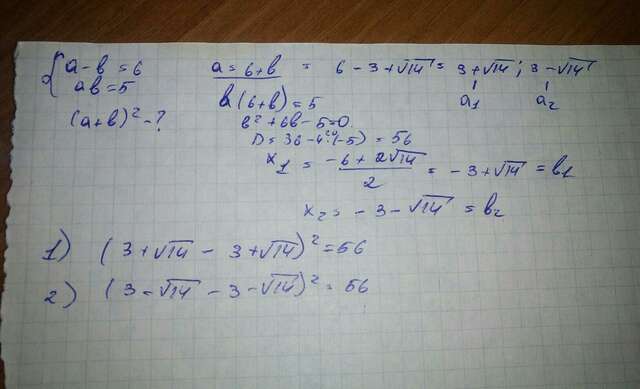 { a - b = 6
ab = 5
(a+b)² - ?
a = 6+b = 6 - 3 + √14 = 3 + √14 ; 3 - √14
a₁ a₂
b(6+b) = 5
b² + 6b - 5 = 0
D = 36 - 4·(-5) = 56
x₁ = (-6 + 2√14)/2 = -3 + √14 = b₁
x₂ = -3 - √14 = b₂
1) (3 + √14 - 3 + √14)² = 56
2) (3 - √14 - 3 - √14)² = 56